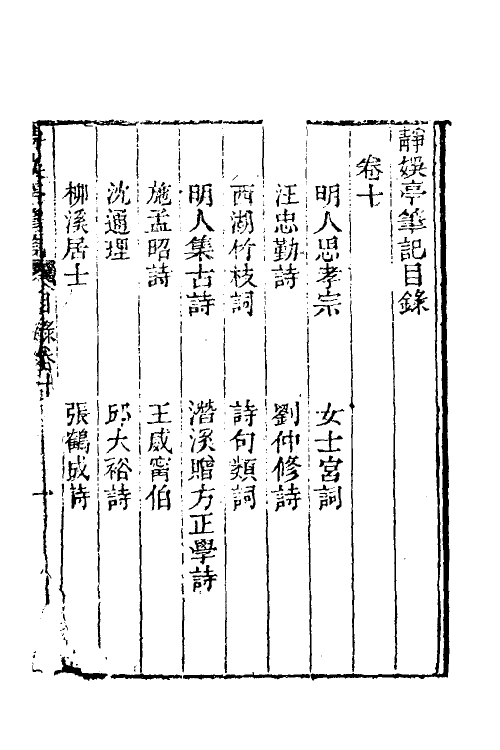 靜娛亭筆記目錄
卷十
明人思孝宗　女士宮詞
汪忠勤詩　劉仲修詩
西湖竹枝詞　詩句類詞
明人集古詩　潛溪贈方正學詩
施孟昭詩　王威甯伯
沈通理　邱大裕詩
柳溪居士　張鶴城詩
目錄卷十　一